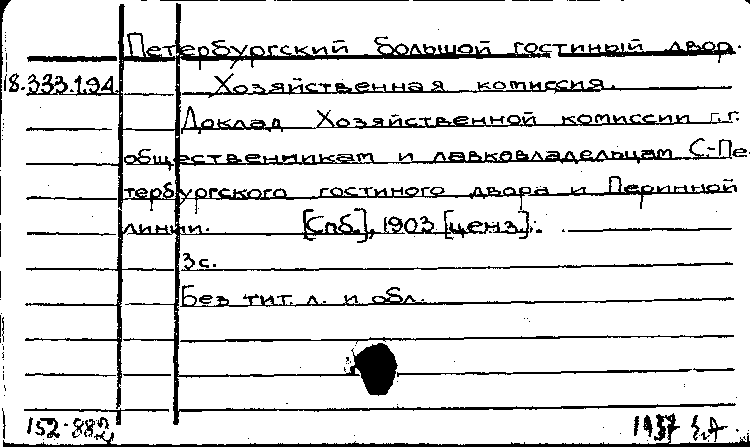 Петербургский большой гостиный двор.
18.333.1.94. Хозяйственная комиссия.
Доклад Хозяйственной комиссии г.г.
общественникам и лавковладельцам С.-Пе-
тербургского гостиного двора и Перинной
линии. [Спб.], 1903 [ценз].
3 с.
Без тит. л. и обл.
152-882 1937